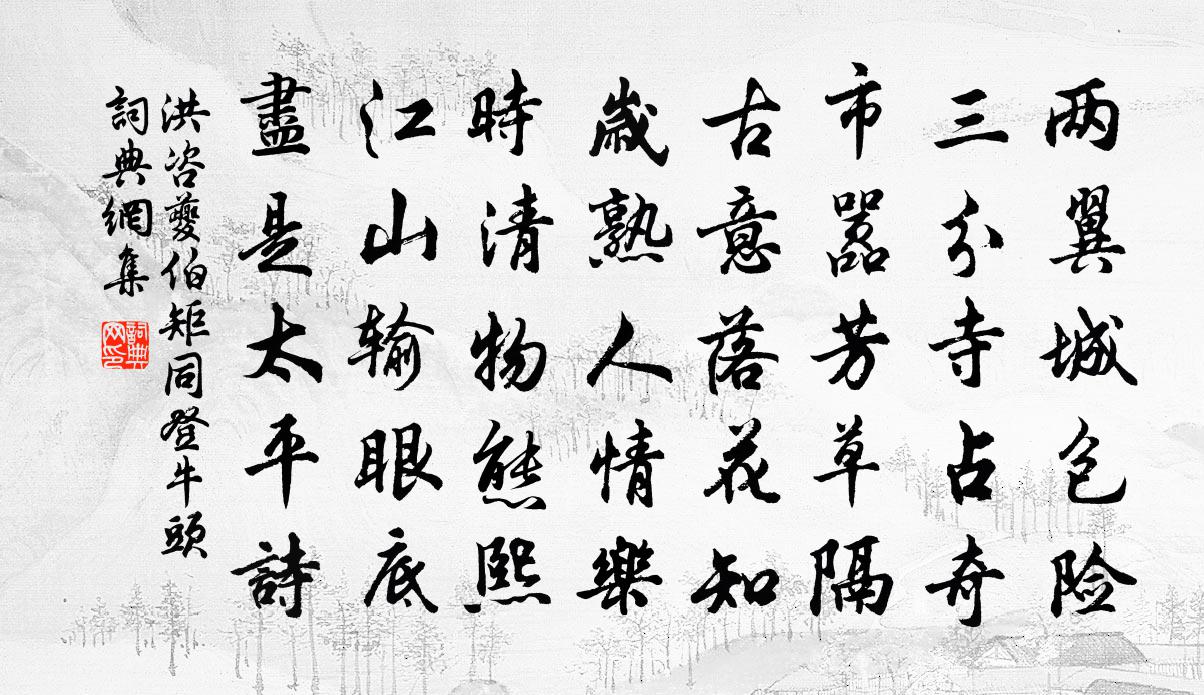 两翼城包险
三分寺占奇
市嚣芳草隔
古意落花知
歲熟人情樂
時清物態熙
江山输眼底
盡是太平詩
洪咨夔伯矩同登牛頭
詞典網集
詞典网印